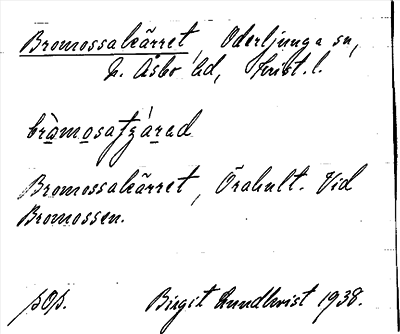 Bromossakärret, Oderljunga sn,
N. Åsbo hd, Krist. l.
Bromossakärret, Örahult. Vid
Bromossen.
pop. Birgit Lundkvist 1938.